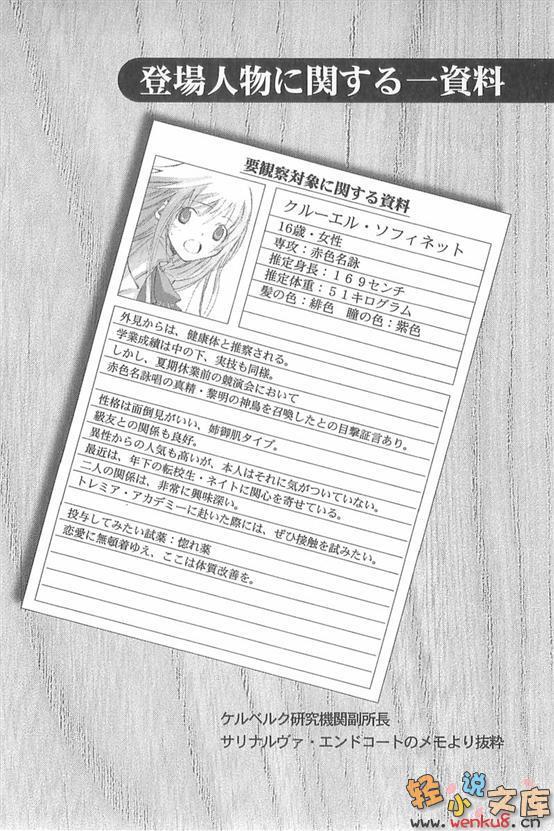 登場人物に関する一資料
要観察対象に関する資料
クルーエル・ソフィネット
16歳・女性
専攻：赤色名詠
推定身長：１６９センチ
推定体重：５１キログラム
髪の色：緋色　瞳の色：紫色
外見からは、健康体と推察される。
学業成績は中の下、実技も同様。
しかし、夏期休業前の競演会において
赤色名詠唱の真精・黎明の神鳥を召喚したとの目撃証言あり。
性格は面倒見がいい、姉御肌タイプ。
級友との関係も良好。
異性からの人気も高いが、本人はそれに気がついていない。
最近は、年下の転校生・ネイトに関心を寄せている。
二人の関係は、非常に興味深い。
トレミア・アカデミーに赴いた際には、ぜひ接触を試みたい。
投与してみたい試薬：惚れ薬
恋愛に無頓着ゆえ、ここは体質改善を。
ケルベルク研究機関副所長
サリナルヴァ・エンドコートのメモより抜粋
轻小说文库
www.wenku8.cn